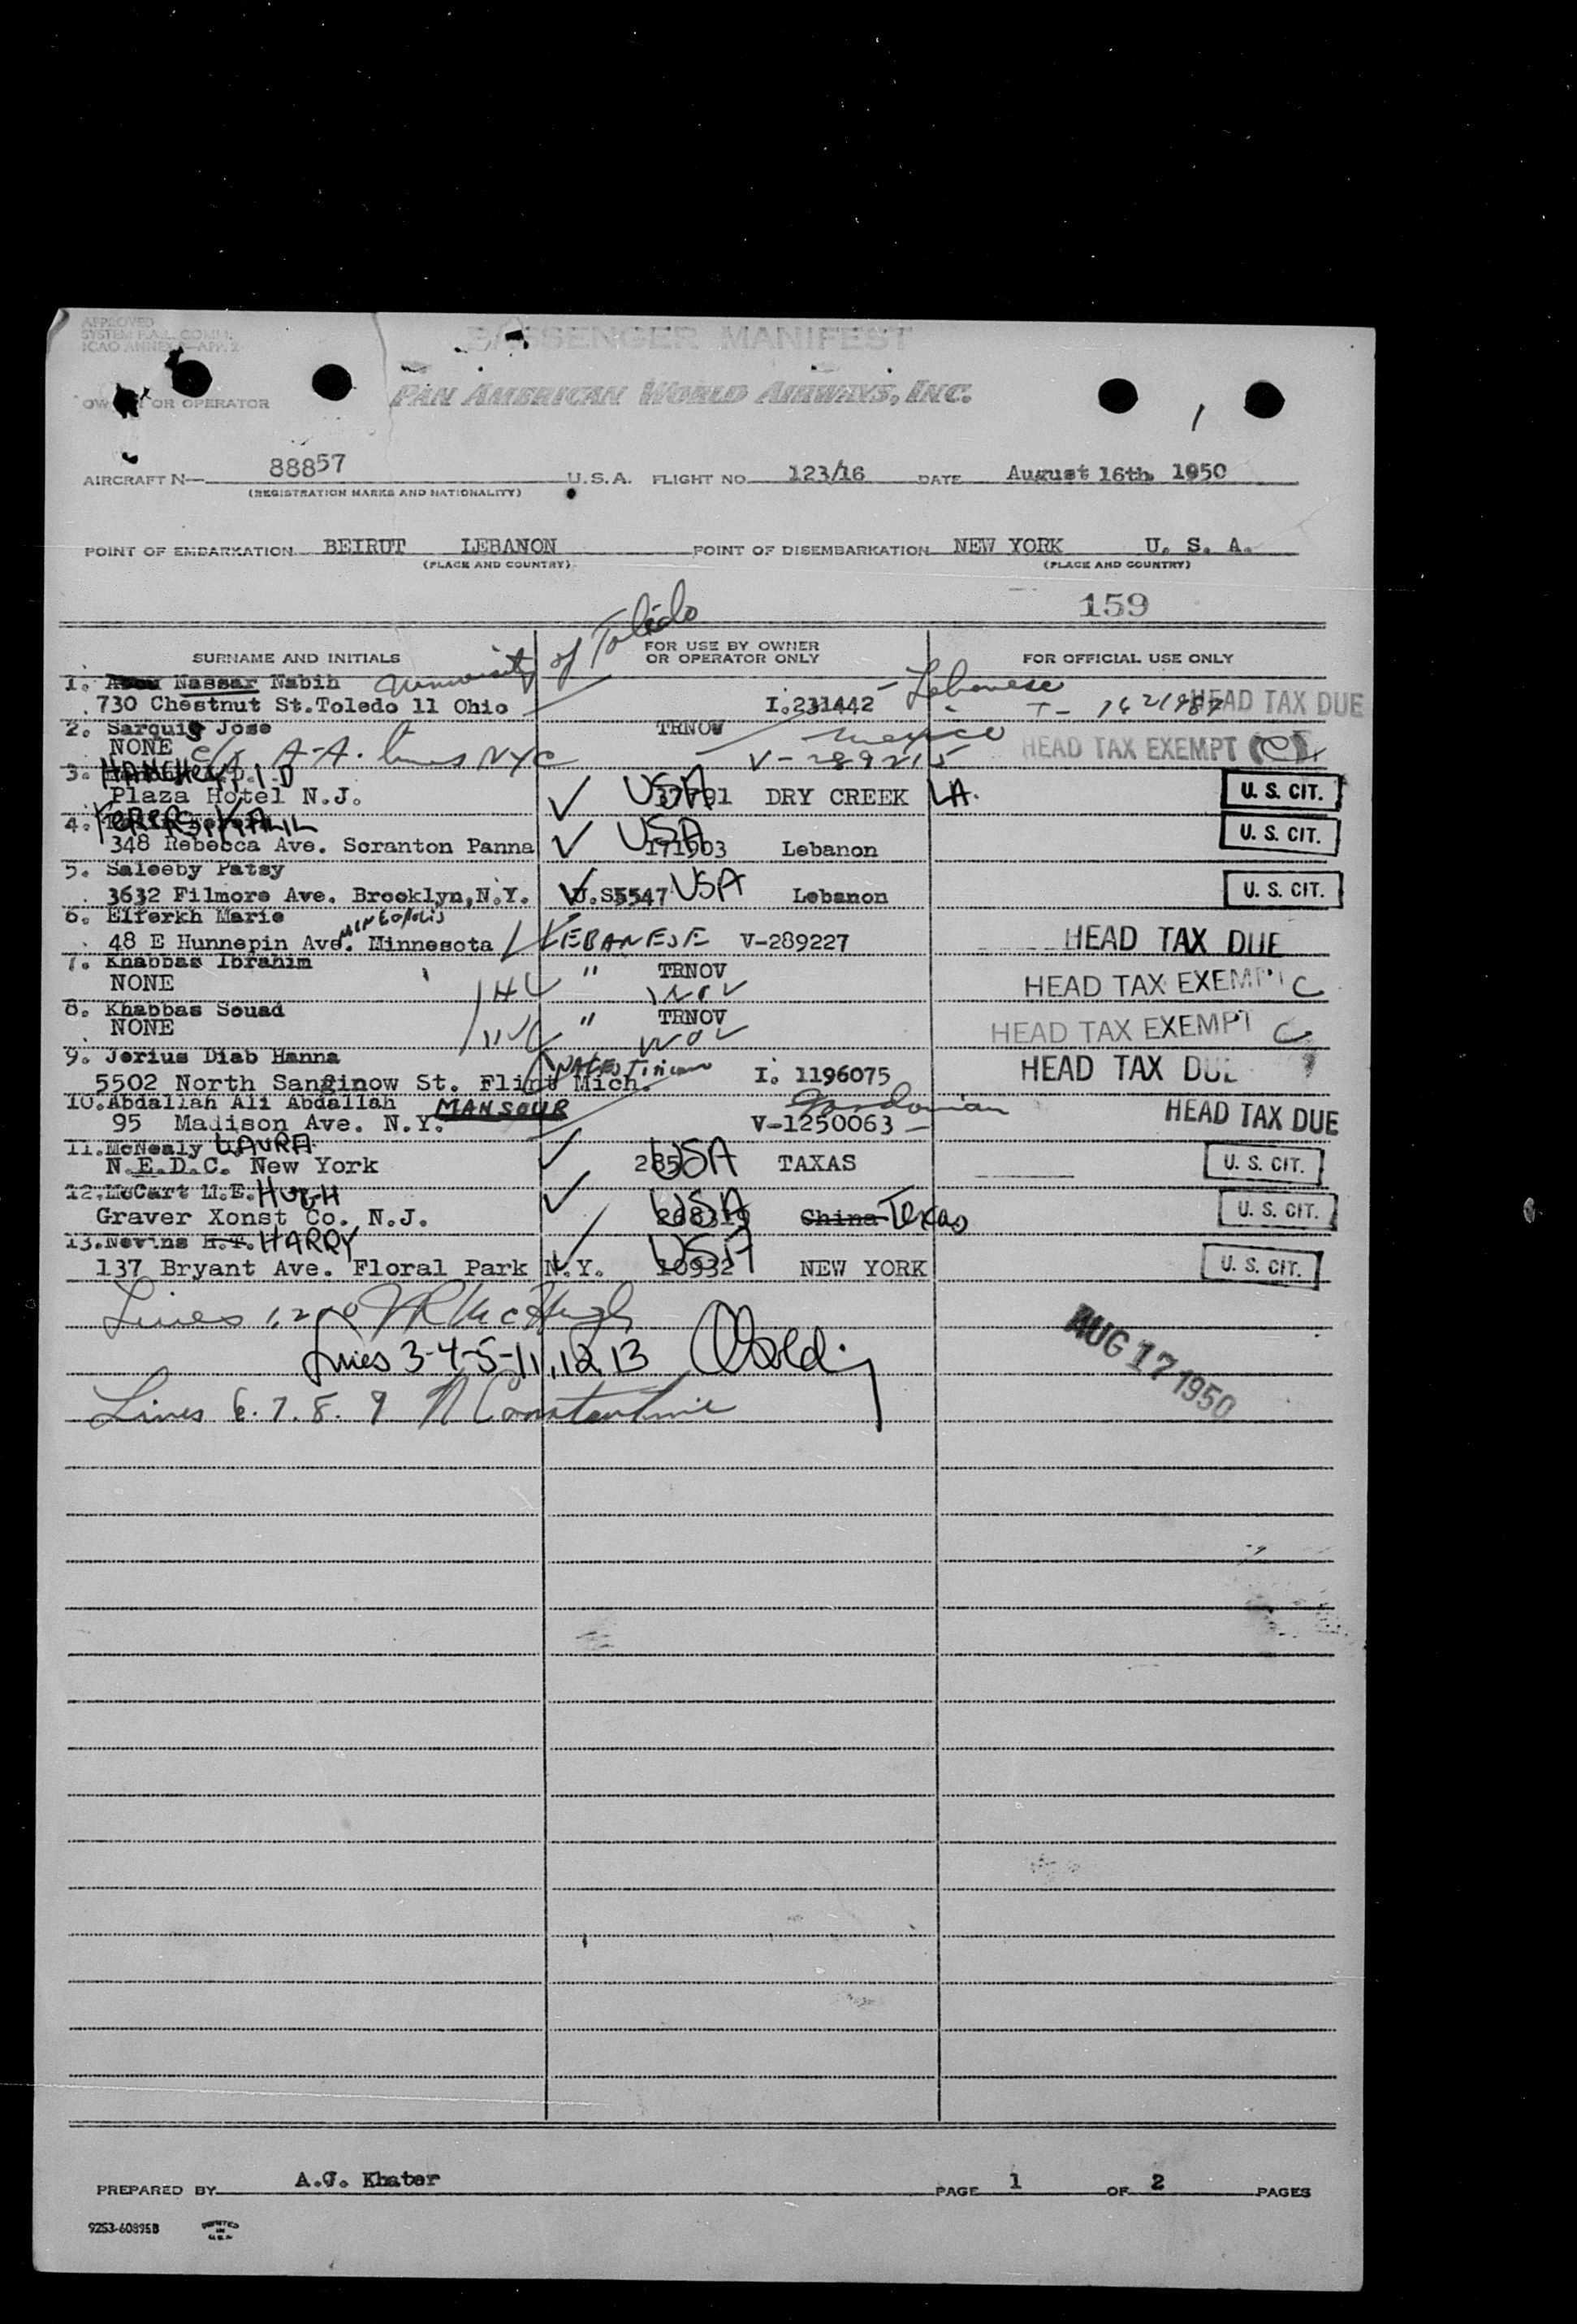 APPROVED
SYSTEM P.A.A. COMM.
ICAO ANNEX 9—APP. 2
PASSENGER MANIFEST
OWNER OR OPERATOR PAN AMERICAN WORLD AIRWAYS, INC.
1
AIRCRAFT N— 88857 U.S.A. FLIGHT NO. 123/16 DATE August 16th. 1950
(REGISTRATION MARKS AND NATIONALITY)
POINT OF EMBARKATION BEIRUT LEBANON POINT OF DISEMBARKATION NEW YORK U. S. A.
(PLACE AND COUNTRY) (PLACE AND COUNTRY)
159
SURNAME AND INITIALS FOR USE BY OWNER OR OPERATOR ONLY FOR OFFICIAL USE ONLY
1. Nassar Nabih University of Toledo Lebanese
730 Chestnut St.Toledo 11 Ohio I.231442 HEAD TAX DUE
2. Sarquis Jose TRNOV Mexico
NONE c/o A-A. Lines NYC V-289215 HEAD TAX EXEMPT
3. HANCHEY, I.D
Plaza Hotel N.J. USA DRY CREEK LA. U. S. CIT.
4. KALIL
348 Rebecca Ave. Scranton Panna USA 171503 Lebanon U. S. CIT.
5. Saleeby Patsy
3632 Filmore Ave. Brooklyn,N.Y. U.S5547 USA Lebanon U. S. CIT.
6. Elferkh Marie
48 E Hunnepin Ave. Minnesota LEBANESE V-289227 HEAD TAX DUE
7. Khabbas Ibrahim " TRNOV
NONE HEAD TAX EXEMPT C
8. Khabbas Souad " TRNOV
NONE HEAD TAX EXEMPT C
9. Jerius Diab Hanna Palestinian
5502 North Sanginow St. Flint Mich. I. 1196075 HEAD TAX DUE
10.Abdallah Ali Abdallah MANSOUR Jordanian
95 Madison Ave. N.Y. V-1250063 HEAD TAX DUE
11.McNealy LAURA
N.E.D.C. New York USA TAXAS U. S. CIT.
12.McCart M.E. HUGH
Graver Xonst Co. N.J. USA China Texas U. S. CIT.
13.Nevins H.T. HARRY
137 Bryant Ave. Floral Park N.Y. USA 10932 NEW YORK U. S. CIT.
Lines 1,2
Lines 3-4-5-11,12,13
AUG 17 1950
Lines 6. 7. 8. 9 N Constantine
PREPARED BY A.J. Khater PAGE 1 OF 2 PAGES
9253-60895B PRINTED IN U.S.A.